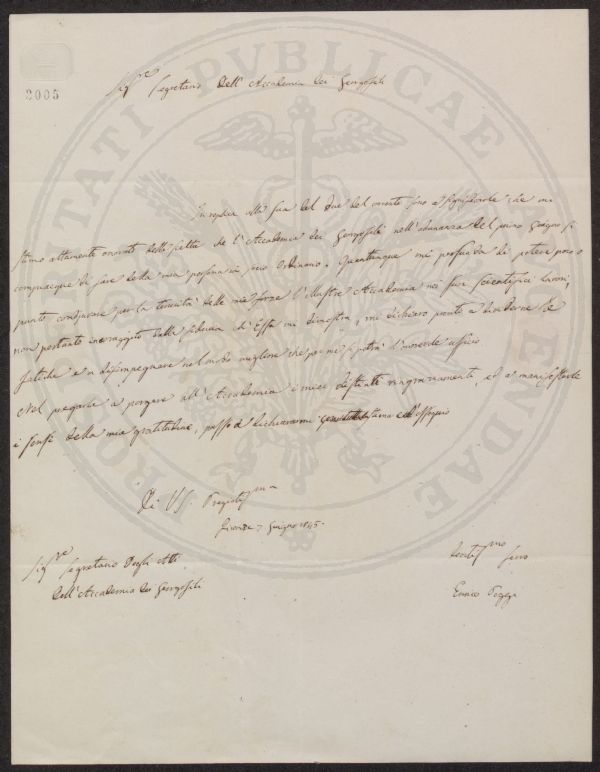 2005
PROSPERITATI PVBLICAE AVGENDAE
Sigre Segretario dell' Accademia dei Georgofili
In replica alla sua del due del corrente sono a significarle che mi
stimo altamente onorato della scelta che l'Accademia dei Georgofili nell'adunanza del primo Giugno si
compiacque di fare della mia persona in socio Ordinario. Quantunque mi persuada di potere poco o
punto coadiuvare per la tenuità delle mie forze l'Illustre Accademia nei suoi scientifici lavori,
non pertanto incoraggito dalla fiducia ch'Essa mi dimostra, mi dichiaro pronto a dividerne le
fatiche e a disimpegnare nel modo migliore che per me si potrà l'onorevole ufficio
Nel pregarla a porgere all'Accademia i miei distinti ringraziamenti, ed a manifestarle
i sensi della mia gratitudine, passo a dichiararmi con stima ed ossequio
Di VS. Pregiatissma
Firenze 7 Giugno 1845.
Sigre Segretario Degli Atti
dell'Accademia dei Georgofili
Devotissmo Servo
Enrico Poggi